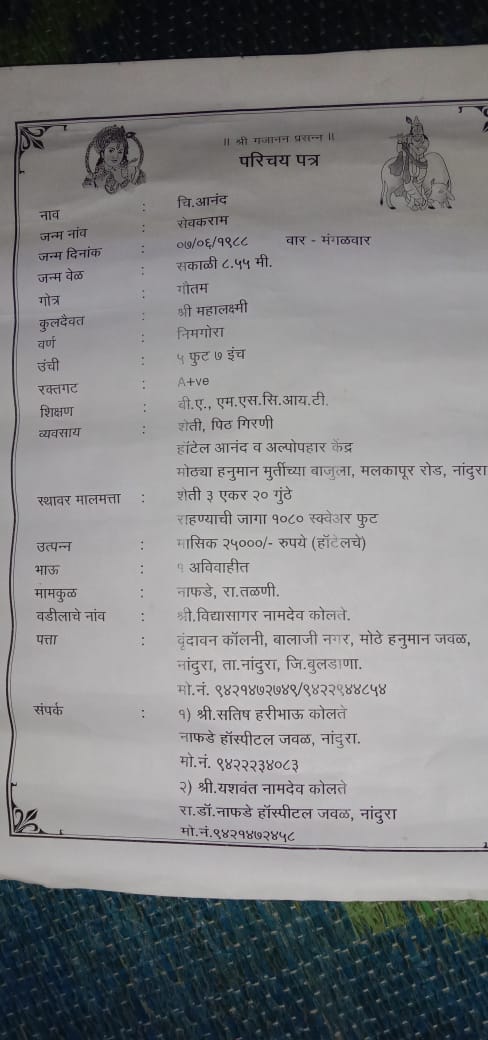 ॥ श्री गजानन प्रसन्न ॥
परिचय पत्र
नाव : चि.आनंद
जन्म नांव : सेवकराम
जन्म दिनांक : ०७/०६/१९८८ वार - मंगळवार
जन्म वेळ : सकाळी ८.५५ मी.
गोत्र : गौतम
कुलदैवत : श्री महालक्ष्मी
वर्ण : निमगोरा
उंची : ५ फुट ७ इंच
रक्तगट : A+ve
शिक्षण : बी.ए., एम.एस.सि.आय.टी.
व्यवसाय : शेती, पिठ गिरणी
हॉटेल आनंद व अल्पोपहार केंद्र
मोठ्या हनुमान मुर्तीच्या बाजुला, मलकापूर रोड, नांदुरा
स्थावर मालमत्ता : शेती ३ एकर २० गुंठे
राहण्याची जागा १०८० स्क्वेअर फुट
उत्पन्न : मासिक २५०००/- रुपये (हॉटेलचे)
भाऊ : १ अविवाहीत
मामकुळ : नाफडे, रा.तळणी.
वडीलाचे नांव : श्री.विद्यासागर नामदेव कोलते.
पत्ता : वृंदावन कॉलनी, बालाजी नगर, मोठे हनुमान जवळ,
नांदुरा, ता.नांदुरा, जि.बुलडाणा.
मो.नं. ९४२१४७२७४९/९४२२९४४८५४
संपर्क : १) श्री.सतिष हरीभाऊ कोलते
नाफडे हॉस्पीटल जवळ, नांदुरा.
मो.नं. ९४२२२३४०८३
२) श्री.यशवंत नामदेव कोलते
रा.डॉ.नाफडे हॉस्पीटल जवळ, नांदुरा
मो.नं.९४२१४७२४५८